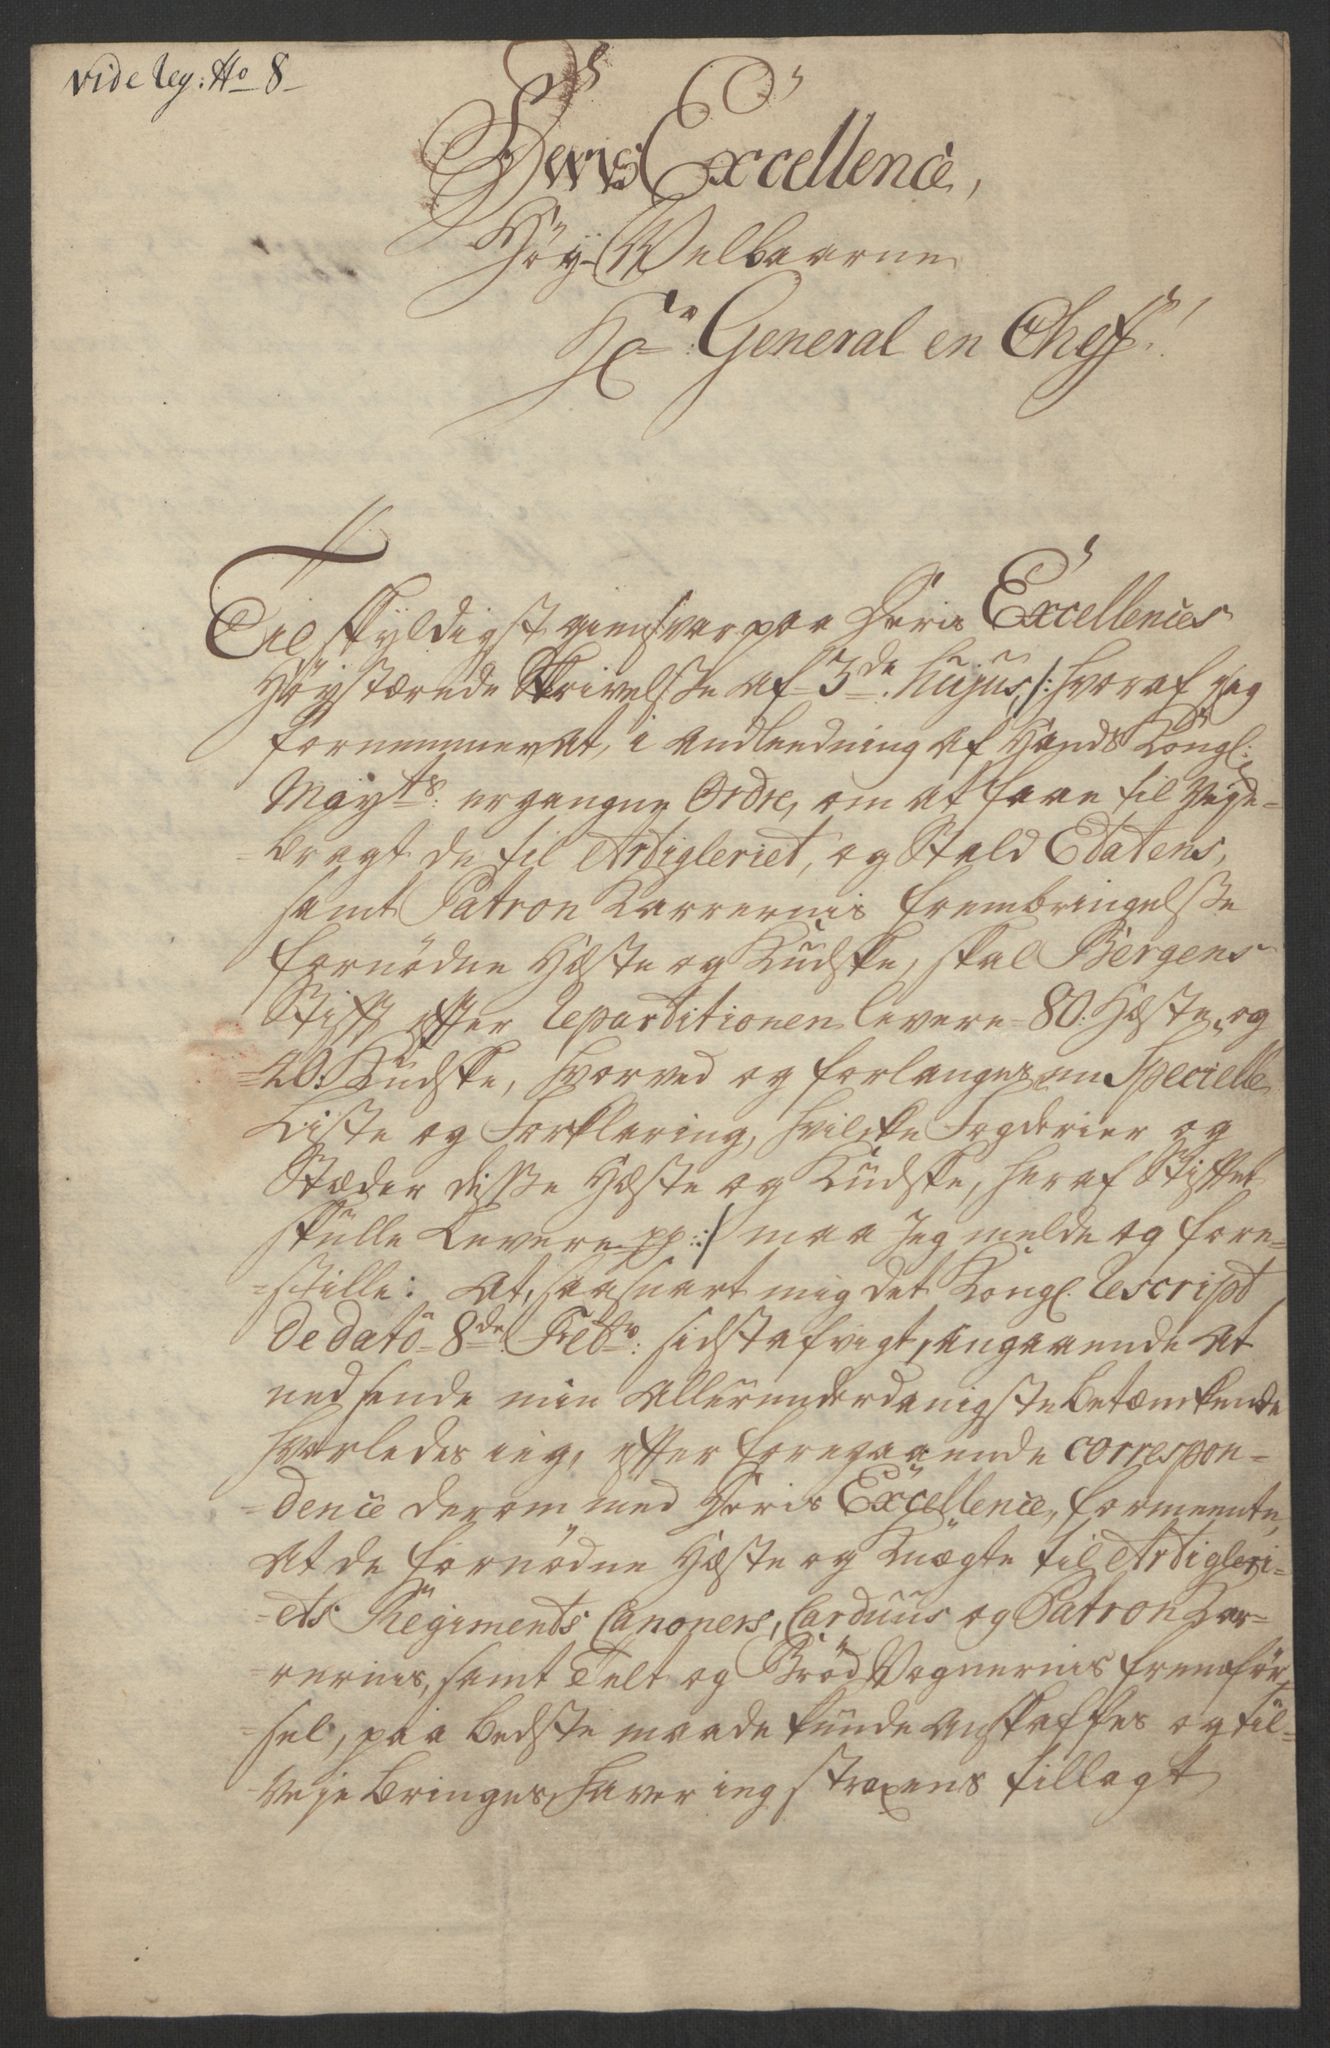 vide Reg: No 8
Deris Excellence,
Høy-Velbaarne
Hr: General en Chef!
Til skyldigst giensvar paa Deris Excellences
Høystærede Skrivelsse af 3de hujus, /: hvoraf jeg
fornemmer at, i andleedning af Hands Kongl:
Mayts: ergangne Ordre, om at faae til Veye-
-bragt de til Artigleriet, og Stald Etatens,
samt Patron Karrernis frembringelsse
fornødne Hæste og Kudske, skal Bergens
Stift efter Repartitionen levere 80. Hæste, og
40. Kudske, hvorved og forlanges en Specielle
Liste og Forklaring, hvilcke Fogderier og
Stæder disse Hæste og Kudske, her af Stiftet
skulle Levere pp: :/ maa Jeg melde og fore-
-stille: At, saasnart mig det Kongl. Rescript
de dato 8de Febr: sidst afvigt, angaaende at
nedsende min Allerunderdanigste Betænkende
hvorledes ieg, efter foregaaende correspon-
-dence derom med Deris Excellence, formeente,
at de fornødne Hæste og Knægte til Artigleri-
-ets Regiments Canoners, Carduus og Patron Kar-
-rernis, samt Telt og Brød Vognernis fremfør-
-sel, paa bedste maade kunde anskaffes og til-
-Veje bringes, haver ieg straxens tillagt